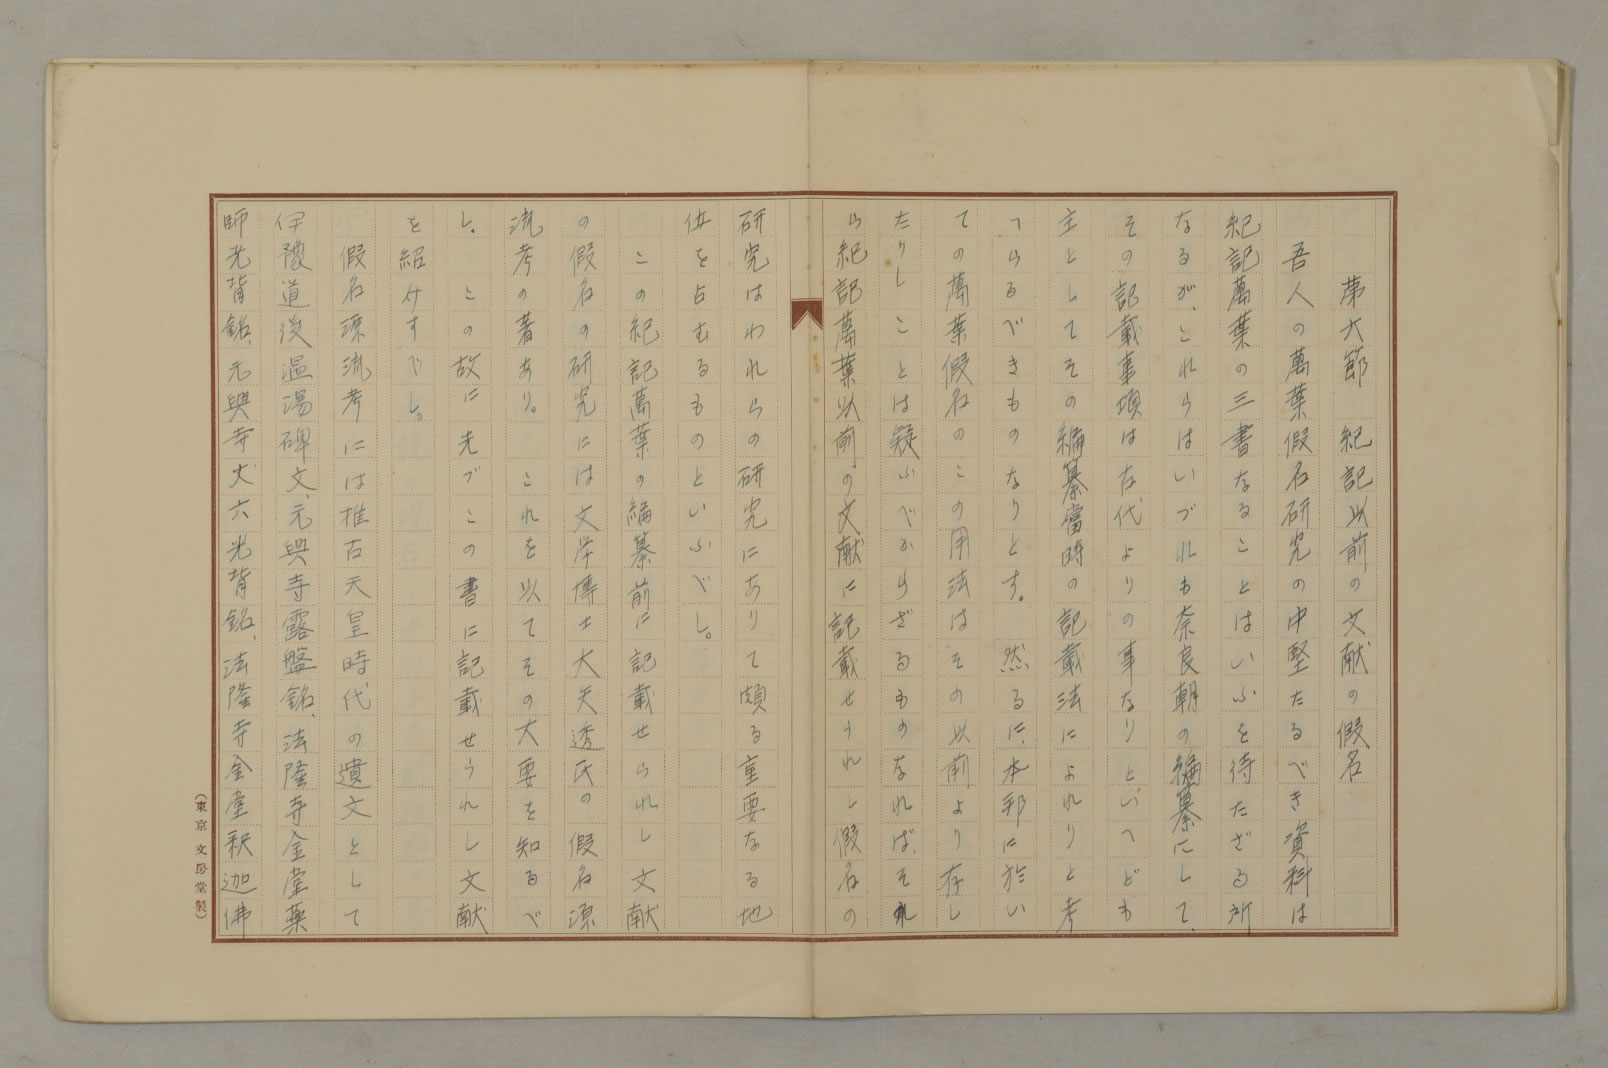 第六節　紀記以前の文献の假名
吾人の萬葉假名研究の中堅たるべき資料は
紀記萬葉の三書なることはいふを待たざる所
なるが、これらはいづれも奈良朝の編纂にして、
その記載事項は古代よりの事なりといへども
主としてその編纂當時の記載法によれりと考
へらるべきものなりとす。　然るに、本邦に於い
ての萬葉假名のこの用法はその以前より存し
たりしことは疑ふべからざるものなれば、それ
ら紀記萬葉以前の文献に記載せられし假名の
研究はわれらの研究にありて頗る重要なる地
位を占むるものといふべし。
この紀記萬葉の編纂前に記載せられし文献
の假名の研究には文学博士大矢透氏の假名源
流考の著あり。　これを以てその大要を知るべ
し。　この故に先づこの書に記載せられし文献
を紹介すべし。
假名源流考には推古天皇時代の遺文として
伊豫道後温湯碑文、元興寺露盤銘、法隆寺金堂薬
師光背銘、元興寺丈六光背銘、法隆寺金堂釈迦佛
（東京文房堂製）